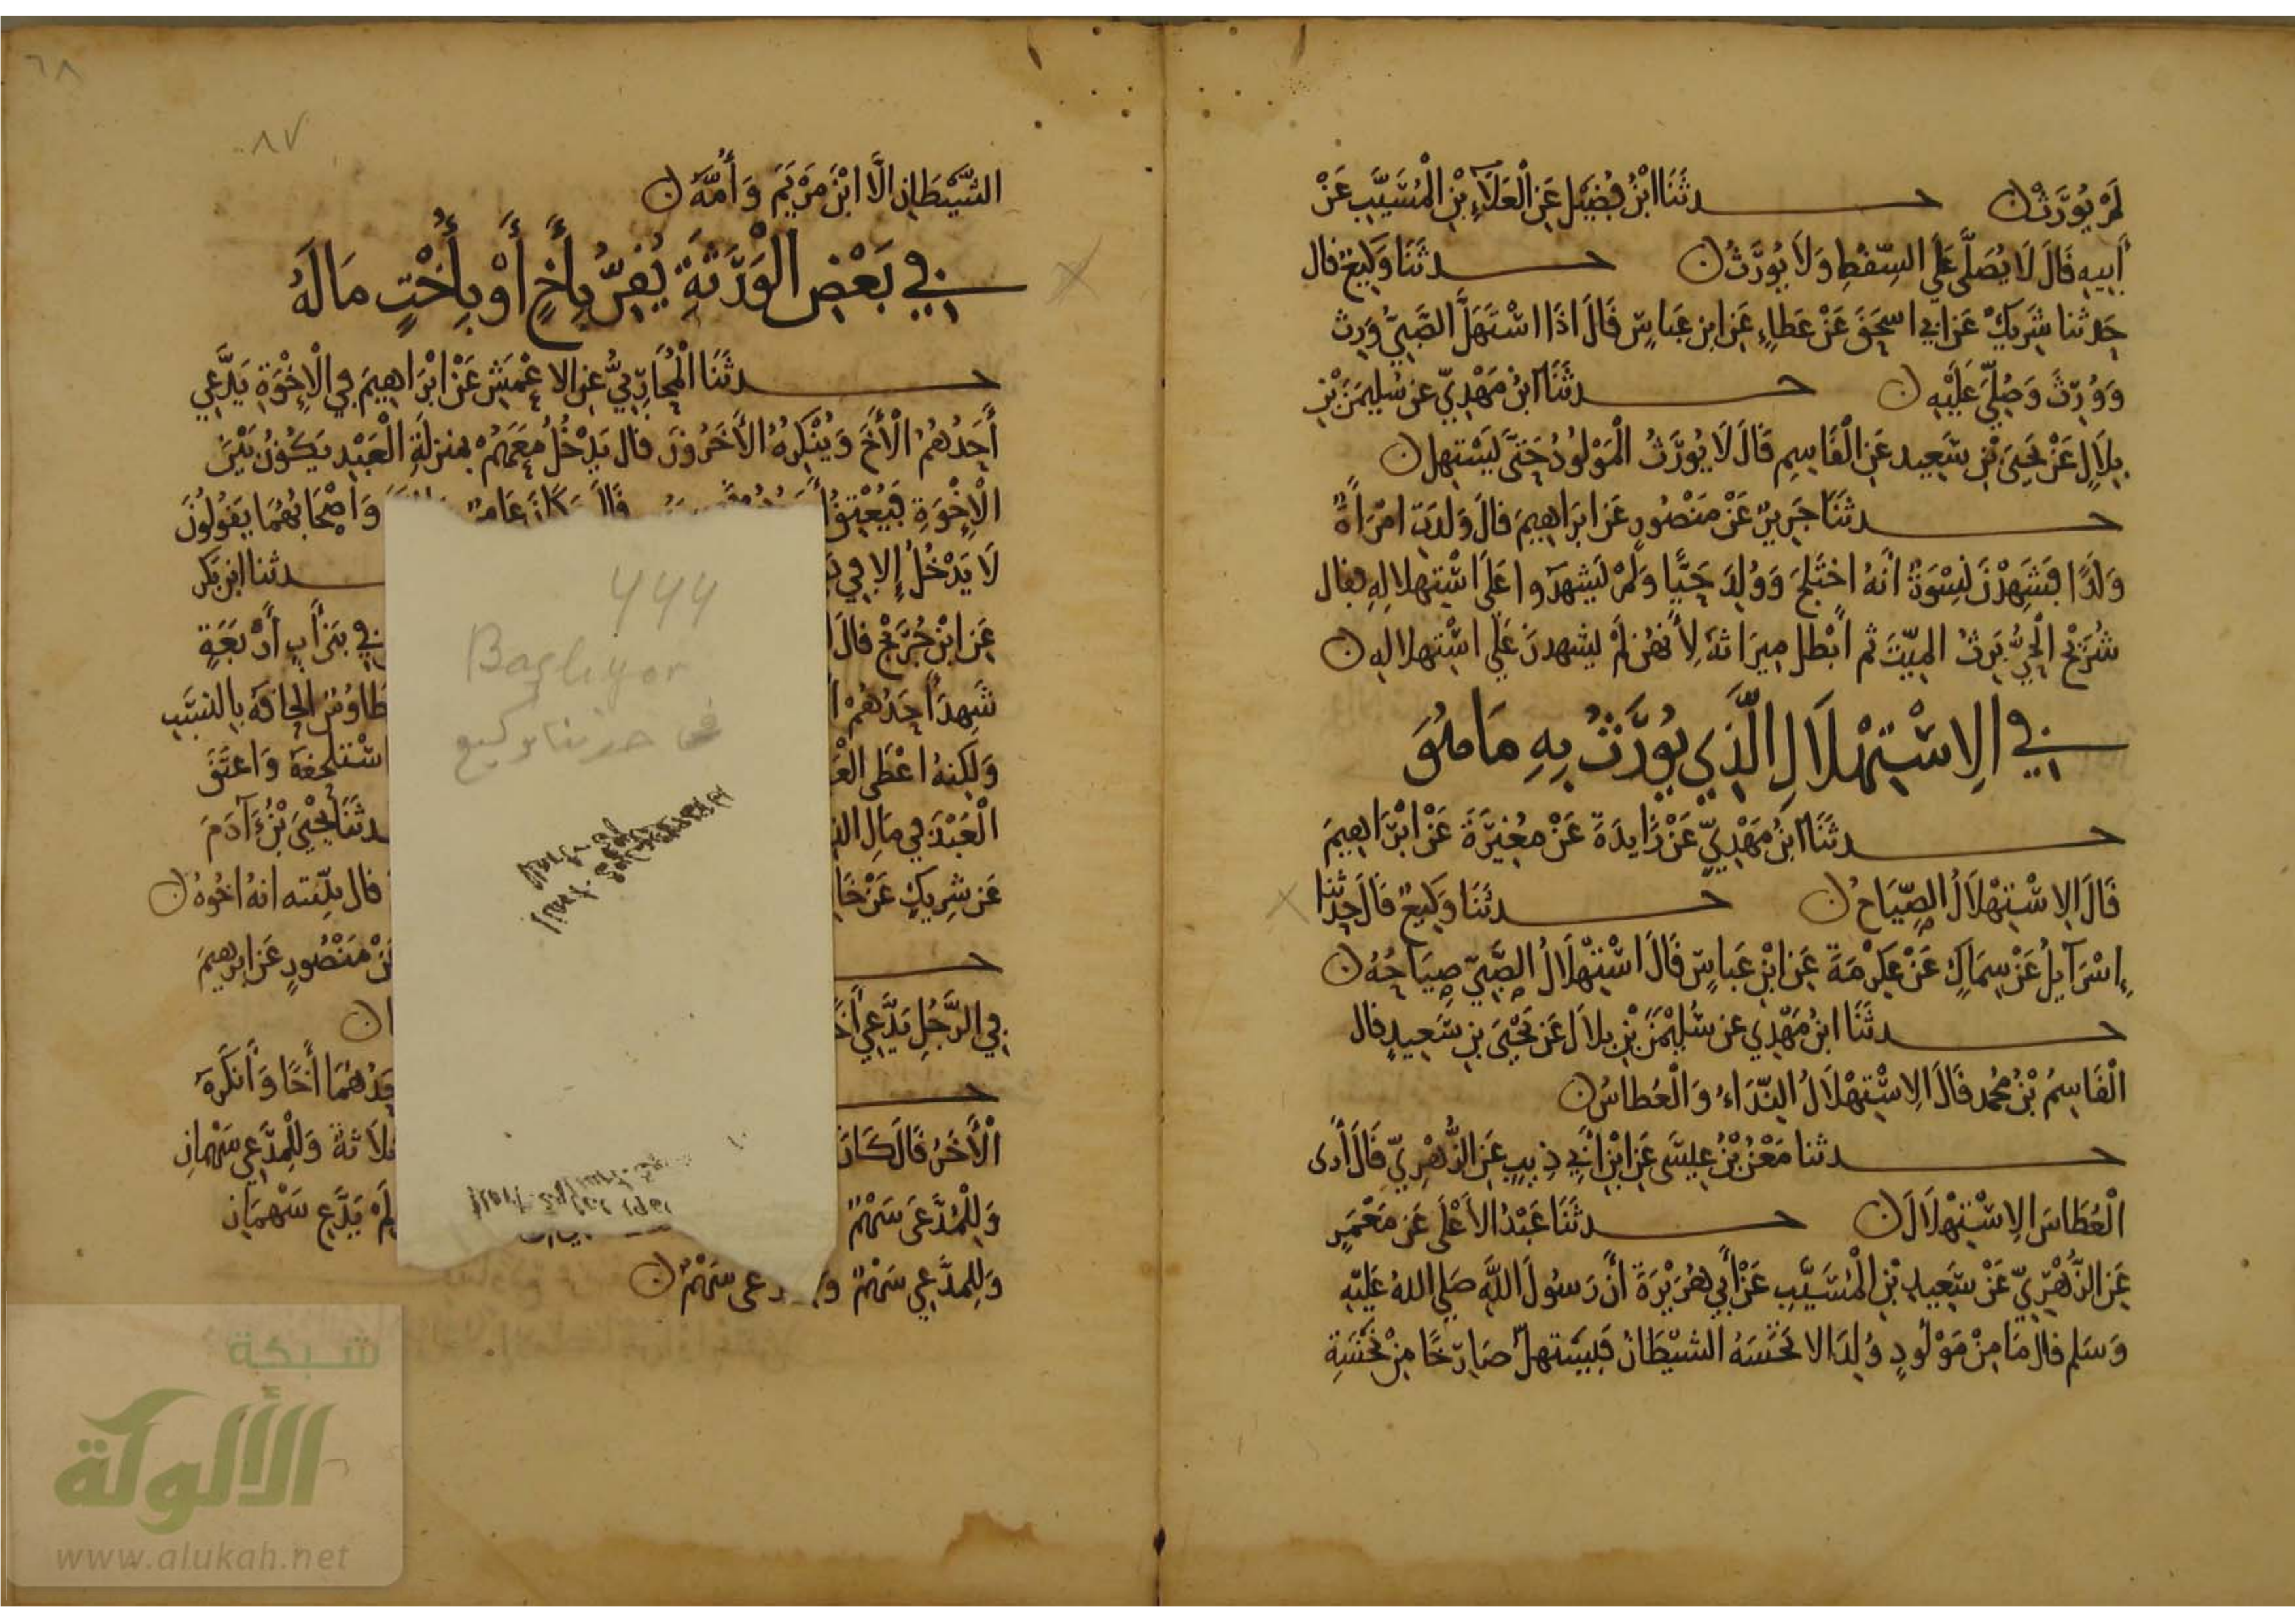 لَمْ يُوَرَّثْ ۞ حدثَنَا ابْنُ فُضَيْلٍ عَنِ الْعَلَاءِ بْنِ الْمُسَيَّبِ عَنْ
أَبِيهِ قَالَ لَا يُصَلَّى عَلَى السِّقْطِ وَلَا يُوَرَّثُ ۞ حدثَنَا وَكِيعٌ قال
حَدثنا شَرِيكٌ عَن أبي اسحَقَ عَنْ عَطَاءٍ عَنِ ابنِ عَبَاسٍ قَالَ اذَا اسْتَهَلَّ الصَّبِيُّ وَرِثَ
وَوُرِّثَ وَصُلِّيَ عَلَيْهِ ۞ حدثَنَا ابنُ مَهْدِيٍّ عن سُليمَنَ بْنِ
بِلَالٍ عَنْ يَحيَى بْنِ سَعِيد عَنِ الْقَاسِمِ قَالَ لَا يُوَرَّثُ الْمَوْلُودُ حَتَّى يَسْتهل ۞
حدثَنَا جَرِيرٌ عَنْ مَنْصُورٍ عَن ابرَاهِيمَ قالَ وَلَدَتِ امْرَأَةٌ
وَلَدًا فَشَهِدْنَ نِسْوَةٌ أنَهُ اخْتَلَجَ وَوُلِدَ حَيًّا وَلَمْ يَشهدوا عَلَى اسْتِهلالِهِ فقال
شُرَيْحٌ الْحَيُّ يَرِثُ الميّتَ ثم أبْطل مِيرَاثَهُ لِأَنهُن لَمْ يشهدنَ عَلَى اسْتِهلالِهِ ۞
في الِاسْتِهْلَالِ الَّذِي يُوَرَّثُ بِهِ مَا هُوَ
حدثَنَا ابنُ مَهْدِيٍّ عَنْ زَايدَةَ عَنْ مُغِيرَةَ عَنْ ابْرَاهِيمَ
قَالَ الِاسْتِهْلَالُ الصِّيَاحُ ۞ حدثَنَا وَكِيعٌ قَالَ حَدثنا
إِسْرَآيِلُ عَنْ سِمَاكٍ عَنْ عِكْرِمَةَ عَنِ ابْنِ عَبَاسٍ قَالَ اسْتِهْلَالُ الصَّبِيِّ صِيَاحُهُ ۞
حدثَنَا ابنُ مَهْدِي عن سُلَيْمَنَ بْنِ بلالٍ عَن يَحْيَى بنِ سَعِيدٍ قال
الْقَاسِمُ بْنُ مُحَمد قَالَ الِاسْتِهْلَالُ النِّدَاءُ وَالْعُطاسُ ۞
حدثنا مَعْنُ بْنُ عِيسَى عَنِ ابْنِ أَبِي ذِيبٍ عَنِ الزُّهْرِيِّ قَالَ أَرَى
الْعُطَاسَ الِاسْتِهْلَالَ ۞ حدثَنَا عَبْدُ الأَعْلَى عَن مَعْمَرٍ
عَنِ الزُّهْرِيِّ عَنْ سَعِيدِ بْنِ الْمُسَيَّبِ عَنْ أَبِي هُرَيْرَةَ أَنَّ رَسُولَ اللَّهِ صَلى اللهُ عَلَيْهِ
وَسَلم قالَ مَا مِنْ مَوْلُودٍ وُلِدَ الا نَخَسَهُ الشيْطَانُ فَيَسْتهلّ صَارخًا مِنْ نَخْسَةِ
٦٨
٨٧
الشَّيْطَانِ الَّا ابْنَ مَرْيَمَ وَأُمَّهُ ۞
في بَعْضِ الْوَرَثَةِ يُقِرُّ بِأَخٍ أَوْ بِأُخْتٍ مَا لَهُ
حدثَنَا الْمُحَارِبِيُّ عَنِ الاعْمَشِ عَنْ ابْرَاهِيمَ فِي الْإِخْوَةِ يَدَّعِي
أَحَدُهُمْ الْأَخَ وَيُنْكِرُهُ الْأخَرُونَ قال يَدْخُلُ مَعَهُمْ بمنزلَةِ الْعَبْدِ يَكُونُ بَيْنَ
الْإِخْوَةِ فَيُعْتِقُ قَالَ وَكَانَ عَامِرٌ وَأصْحَابُهُمَا يَقُولُونَ
لَا يَدْخُلُ إِلا فِي حدثنا ابن بكر
عَنِ ابْنِ جُرَيْجٍ قالَ فِي بَنِي أَبٍ أَرْبَعَةٍ
شَهِدَ أَحَدُهُمْ طَاوُس إلحاقَهُ بِالنسَبِ
وَلَكِنهُ اعْطَى استلحقهُ وَاعتَقَ
الْعَبْدَ فِي مَالِ حدثَنَا يَحْيَى بْنُ آدَمَ
عَن شرِيكٍ عَنْ قال بيّنته انهُ اخُوهُ ۞
مَنْصُورٍ عَن ابرهيمَ
فِي الرَّجُلِ يَدَّعِي
أَخًا وَأَنكَرَهُ
الْأَخَرُ قَالَ كَانَ وَلِلْمدَّعِي سَهْمانِ
وَلِلْمُدَّعَى سَهْمٌ لَمْ يَدَّعِ سَهْمَانِ
وَلِلمدَّعِي سَهْمٌ سَهْمٌ ۞
444
حدثنا وكيع
شبكة
الألوكة
www.alukah.net